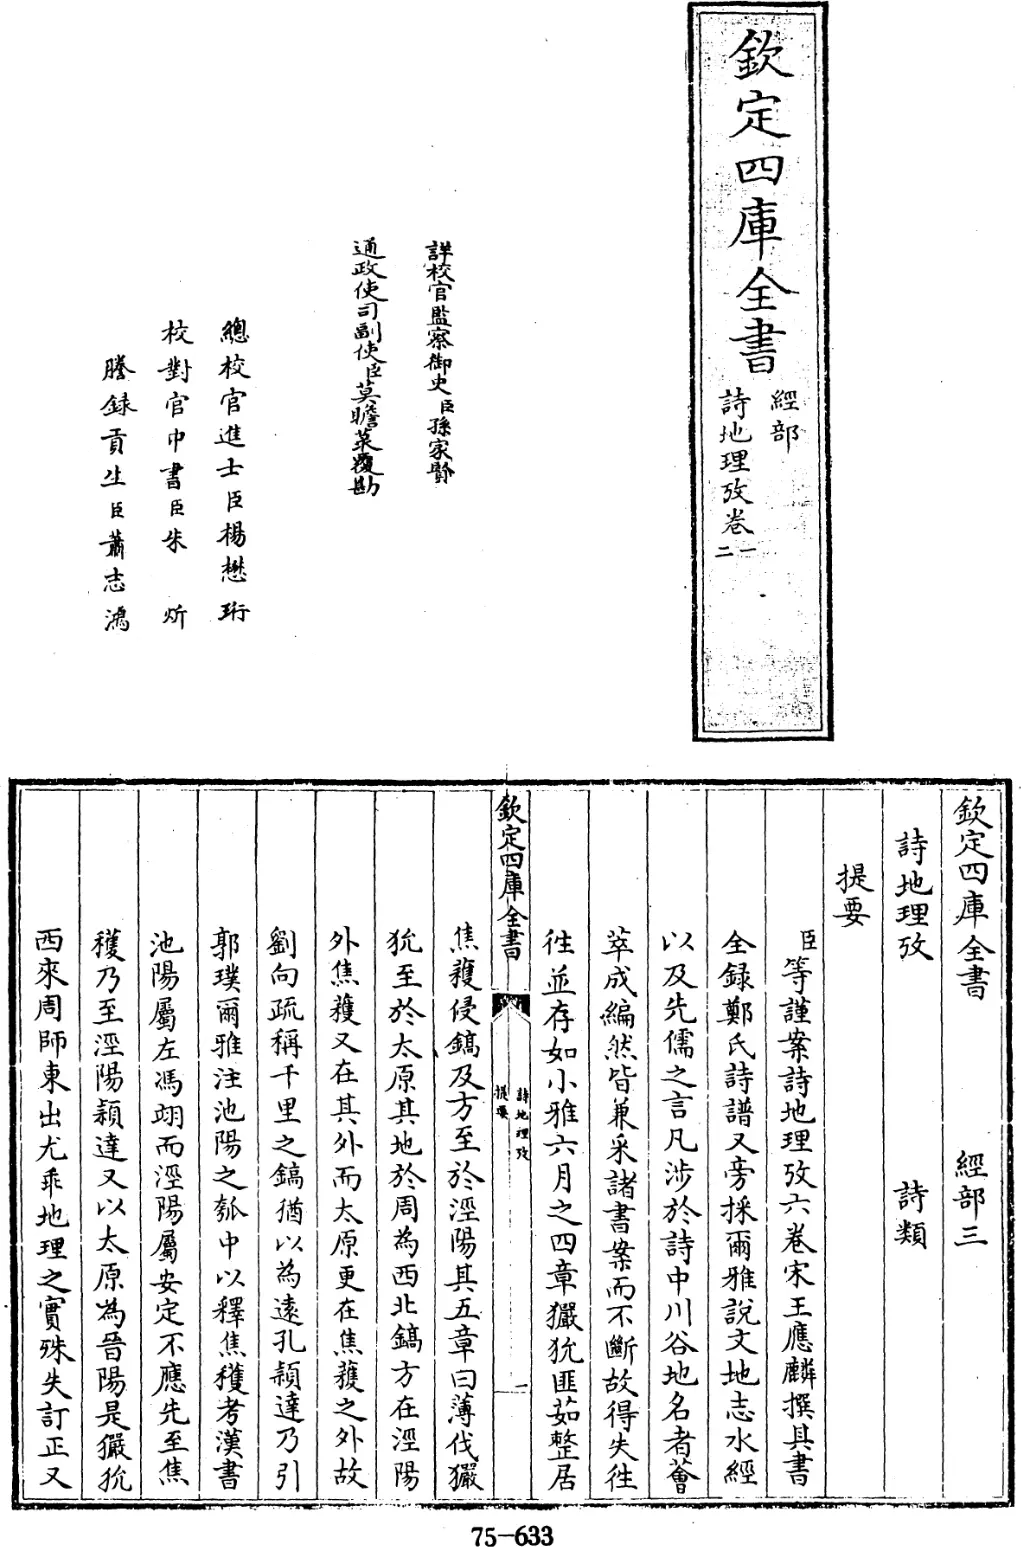 欽定四庫全書
經部
詩地理攷卷一
二
詳校官監察御史臣孫家賢
通政使司副使臣莫瞻菉覆勘
總校官進士臣楊懋珩
校對官中書臣朱炘
謄錄貢生臣蕭志鴻
欽定四庫全書 經部三
詩地理攷 詩類
提要
臣等謹案詩地理攷六卷宋王應麟撰其書
全録鄭氏詩譜又旁採爾雅說文地志水經
以及先儒之言凡涉於詩中川谷地名者薈
萃成編然皆兼采諸書案而不斷故得失往
徃並存如小雅六月之四章玁狁匪茹整居
欽定四庫全書
詩地理攷
提要
一
焦穫侵鎬及方至於涇陽其五章曰薄伐玁
狁至於太原其地於周為西北鎬方在涇陽
外焦穫又在其外而太原更在焦穫之外故
劉向疏稱千里之鎬猶以為遠孔頴達乃引
郭璞爾雅注池陽之瓠中以釋焦穫考漢書
池陽屬左馮翊而涇陽屬安定不應先至焦
穫乃至涇陽頴達又以太原為晉陽是玁狁
西來周師東出尤乖地理之實殊失訂正又
75-633